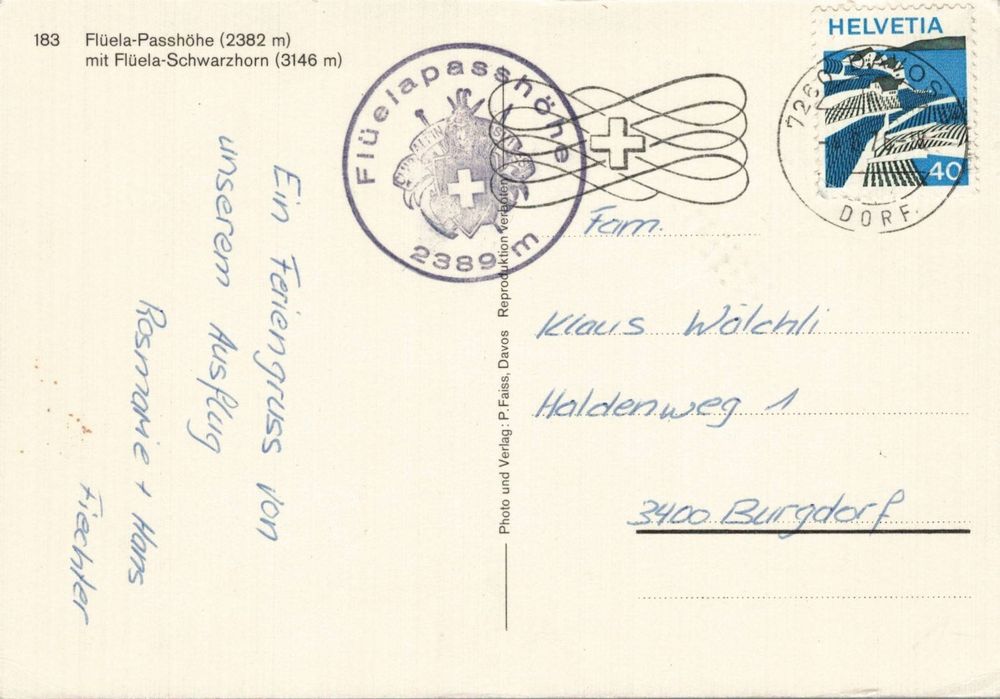 183 Flüela-Passhöhe (2382 m)
mit Flüela-Schwarzhorn (3146 m)
Flüelapasshöhe
2389 m
HELVETIA
40
7260 DAVOS
DORF
Ein Feriengruss von
unserem Ausflug
Rosmarie + Hans
Fiechter
Photo und Verlag: P. Faiss, Davos Reproduktion verboten
Fam.
Klaus Wälchli
Haldenweg 1
3400 Burgdorf